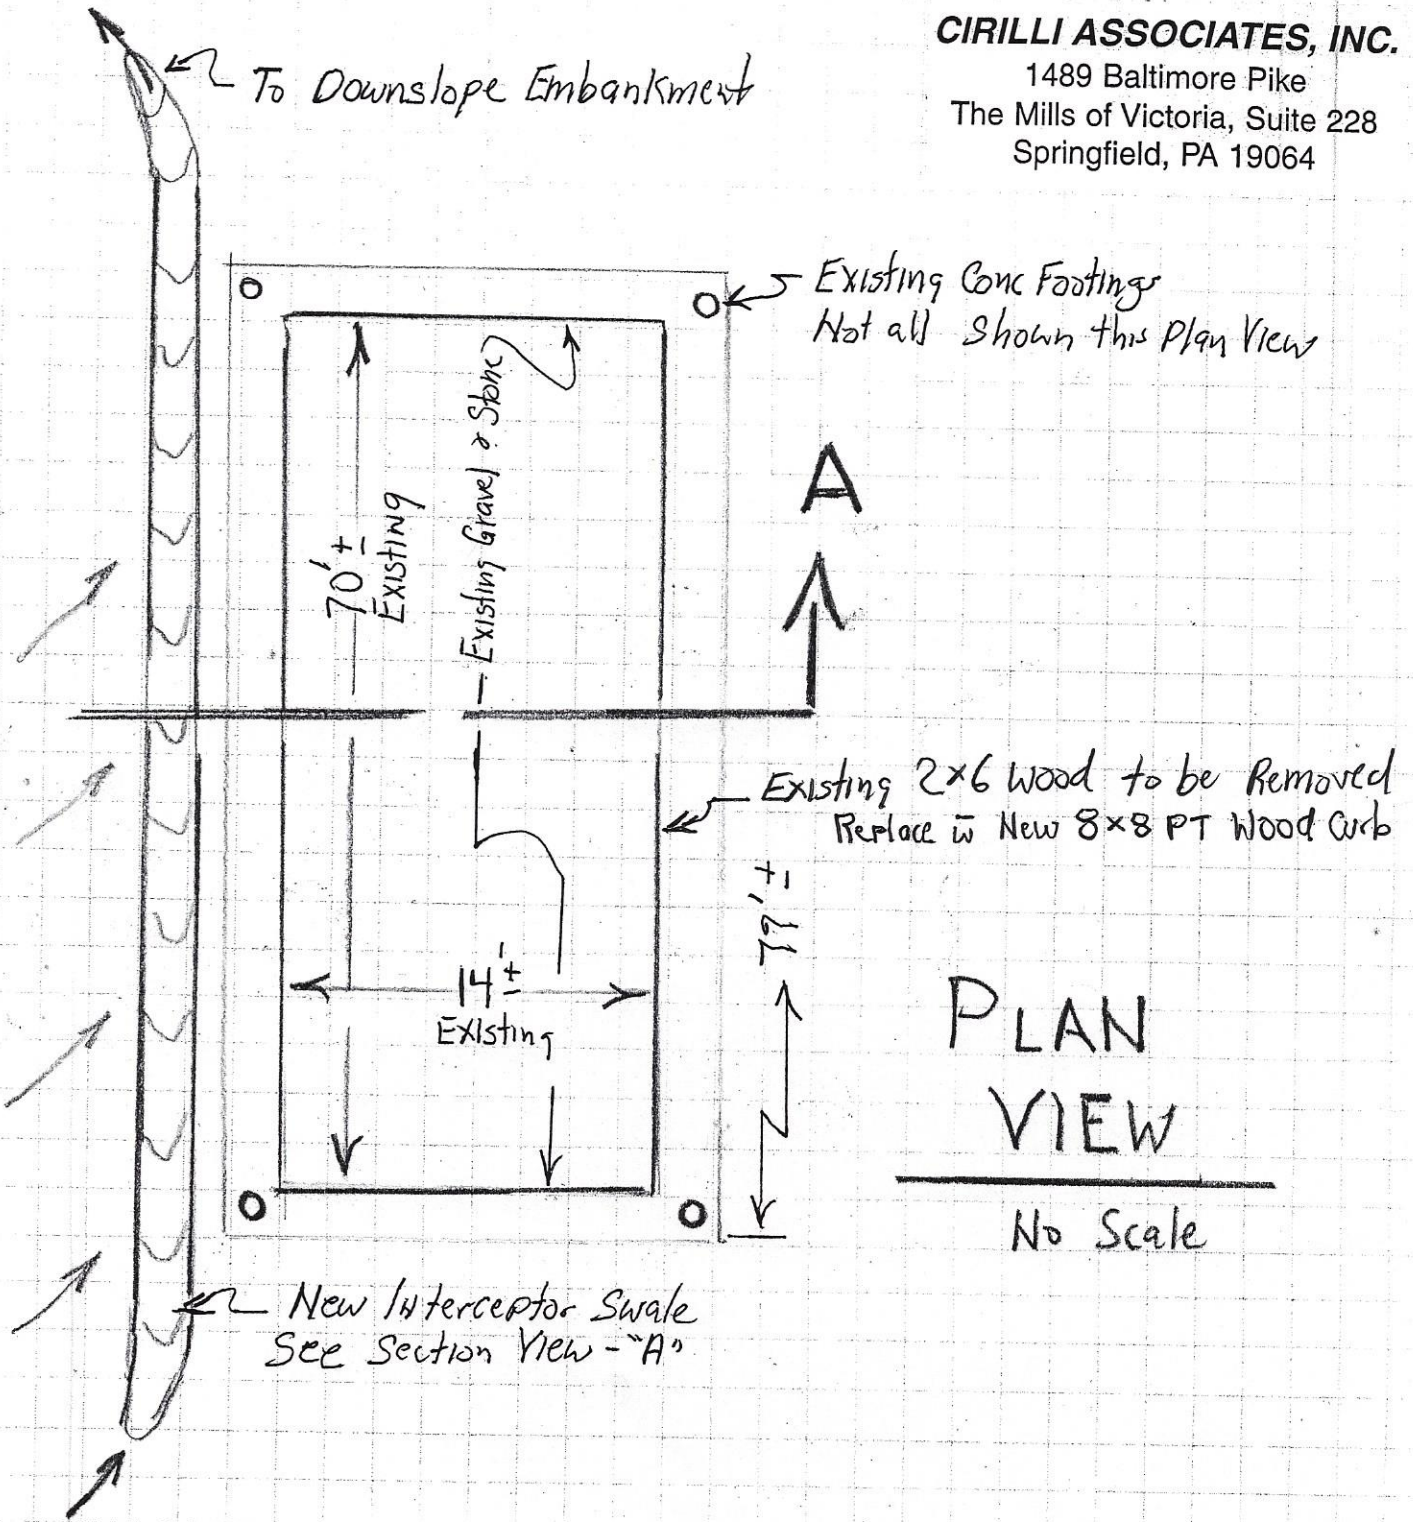 CIRILLI ASSOCIATES, INC.
1489 Baltimore Pike
The Mills of Victoria, Suite 228
Springfield, PA 19064
To Downslope Embankment
Existing Conc Footings
Not all Shown this Plan View
70'±
Existing
Existing Gravel & Stone
A
Existing 2x6 Wood to be Removed
Replace w̄ New 8x8 PT Wood Curb
79'±
14'±
Existing
PLAN
VIEW
No Scale
New Interceptor Swale
See Section View - "A"